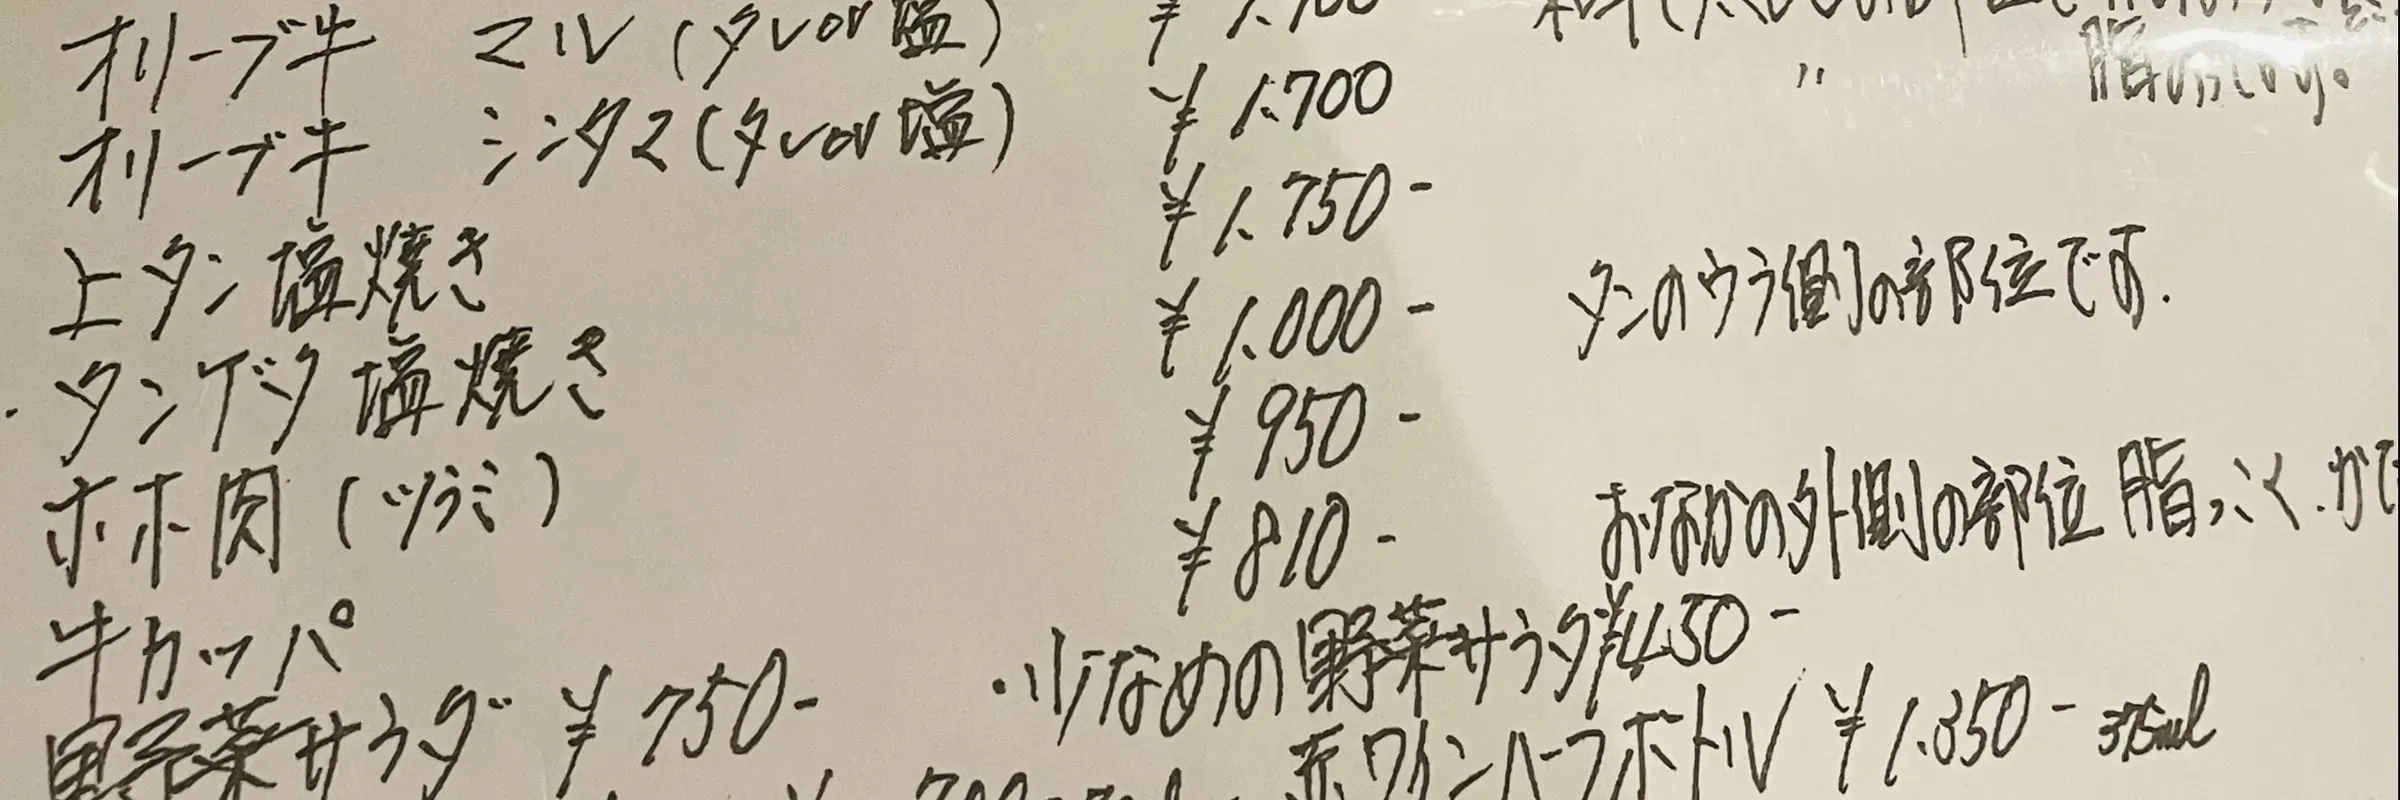 オリーブ牛 マル(タレor塩) ¥1.700
〃 脂少なめです。
オリーブ牛 シンタマ(タレor塩) ¥1.700
上タン塩焼き ¥1.750-
・タンゲタ塩焼き ¥1.000- タンのウラ側の部位です.
ホホ肉(ツラミ) ¥950-
牛カッパ ¥810- おなかの外側の部位 脂っこく.かて
野菜サラダ ¥750- ・少なめの野菜サラダ¥450-
赤ワインハーフボトル ¥1.350- 375ml